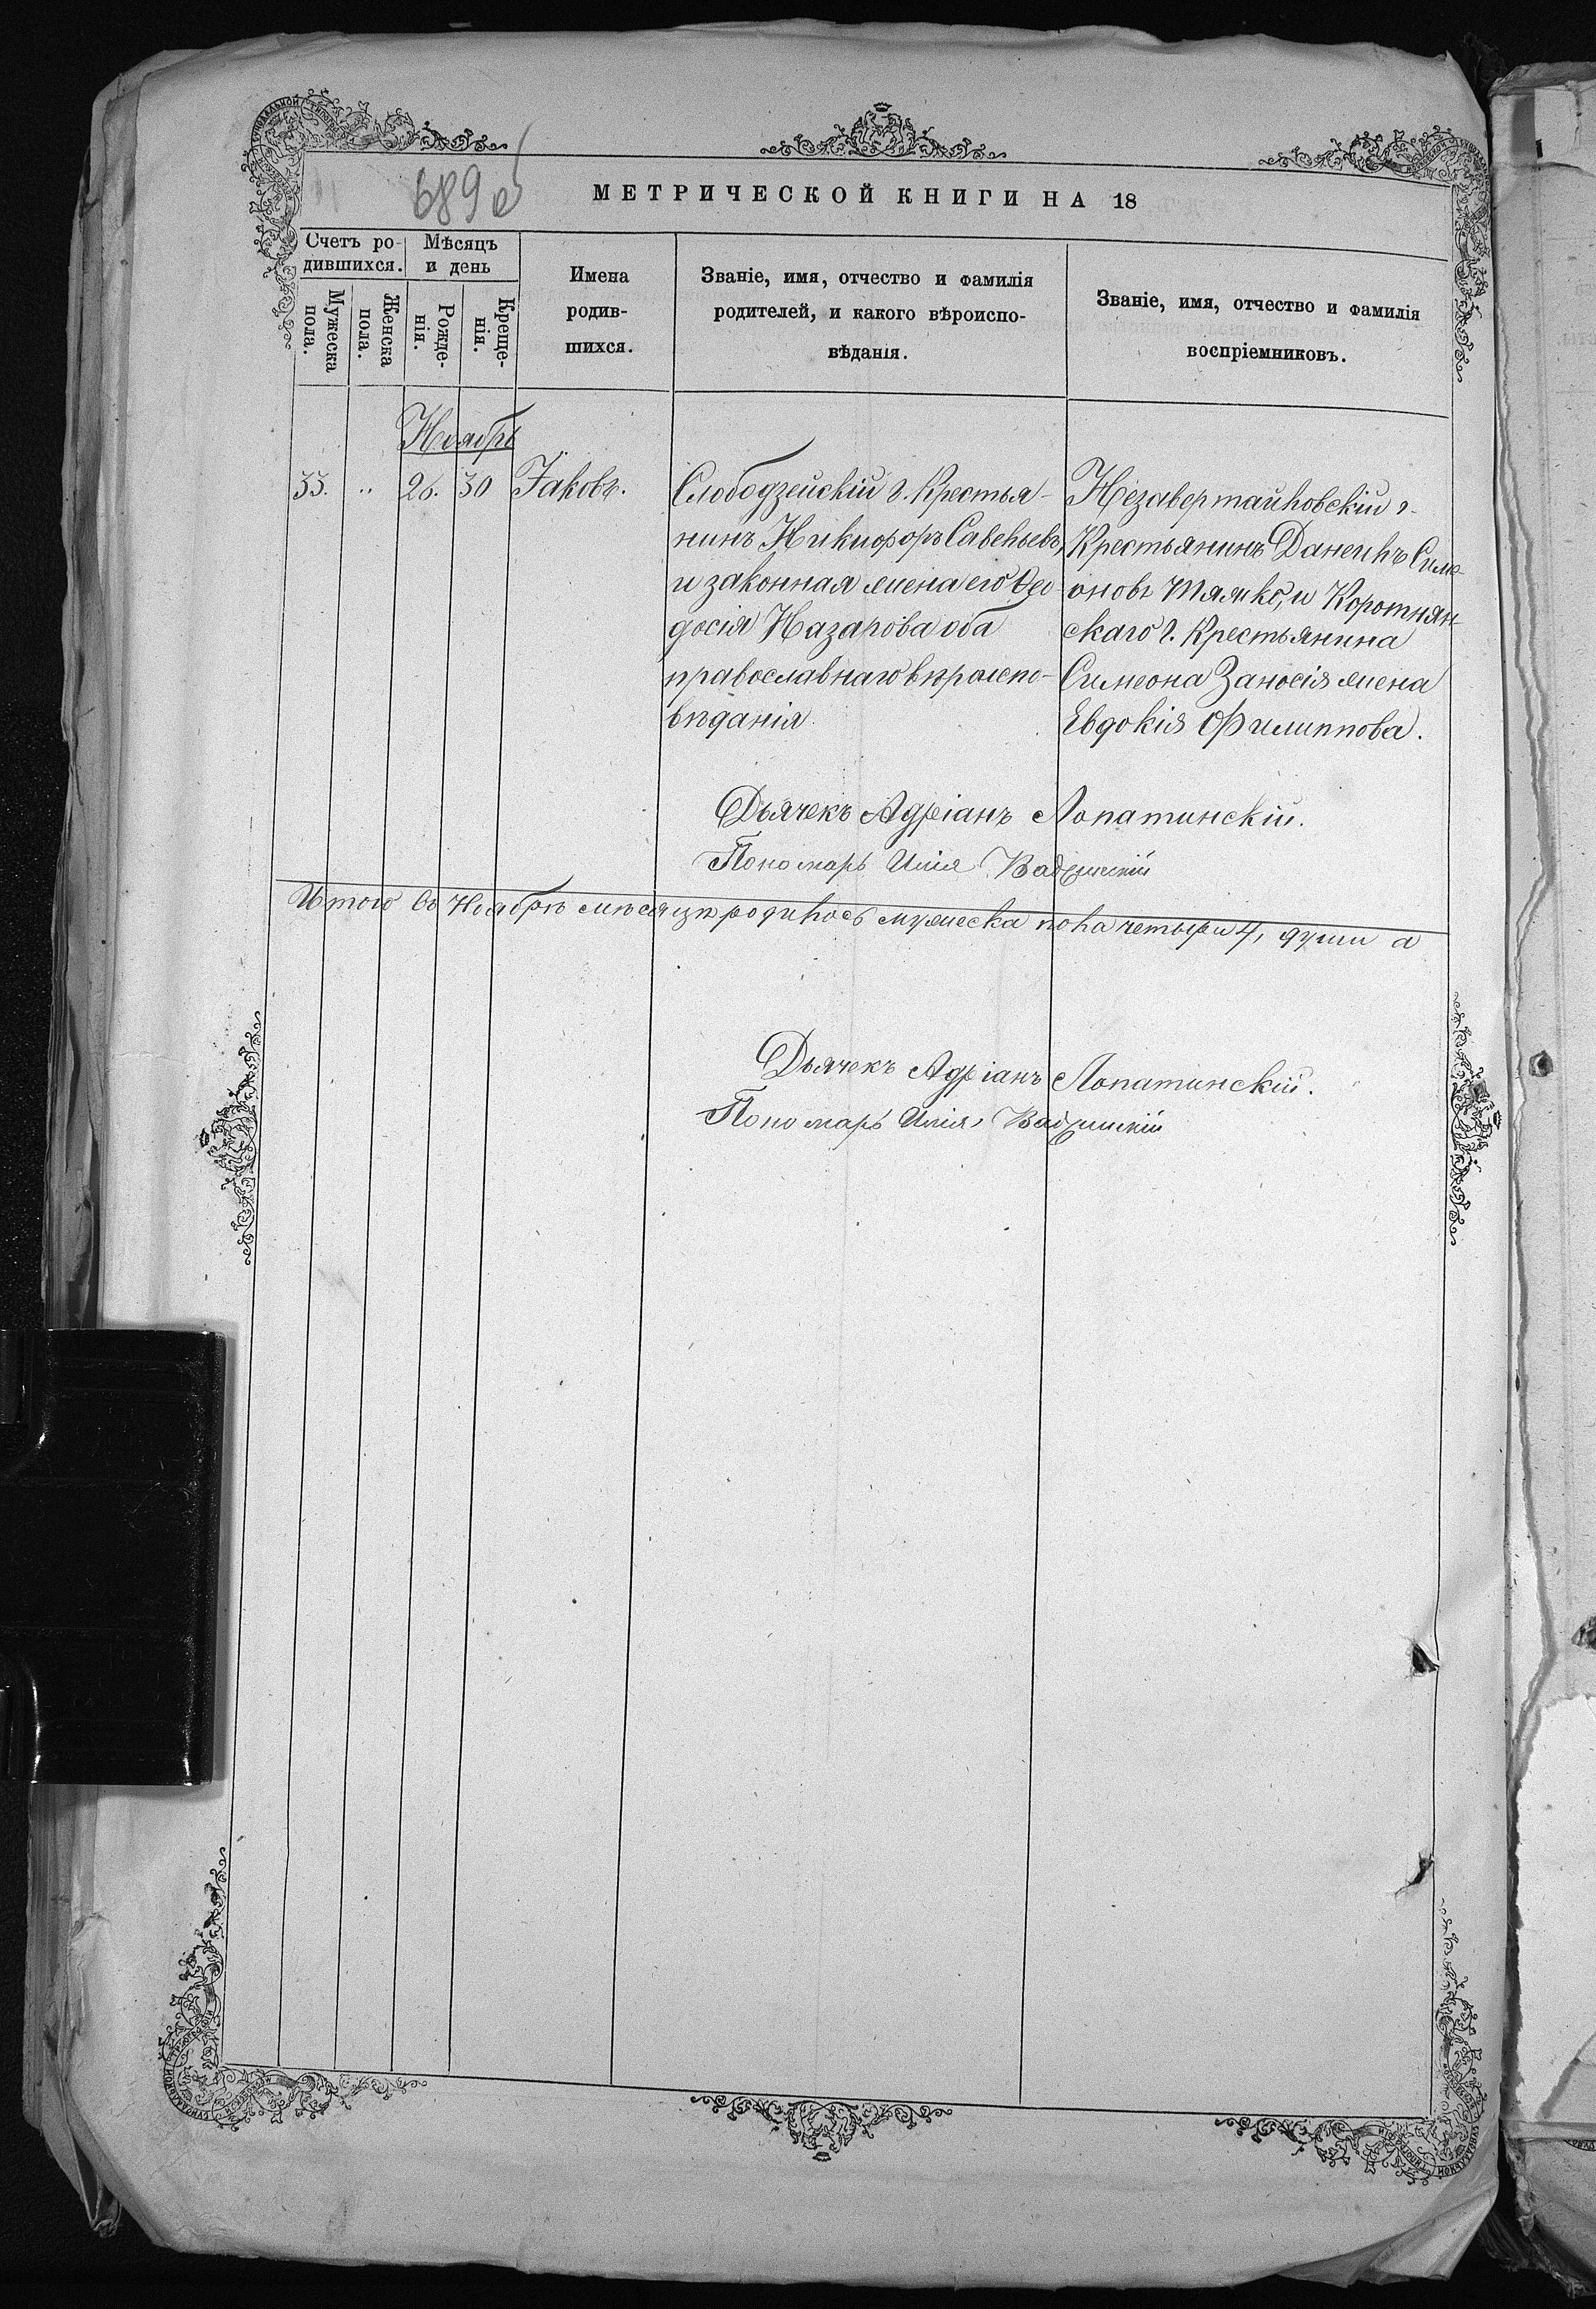 689 об
МЕТРИЧЕСКОЙ КНИГИ НА 18
Счетъ ро-
дившихся.
Мѣсяцъ
и день
Мужеска
пола.
Женска
пола.
Рожде-
нія.
Креще-
нія.
Имена
родив-
шихся.
Званіе, имя, отчество и фамилія
родителей, и какого вѣроиспо-
вѣданія.
Званіе, имя, отчество и фамилія
воспріемниковъ.
Ноябрь
33. „ 26. 30 Іаковъ.
Слободзейскій г. Крестья-
нинъ Никифоръ Савельевъ,
и законная жена его Ѳео
досія Назарова оба
православнаго вѣроиспо-
вѣданія
Незавертайловскій г.
Крестьянинъ Даніилъ Симе-
оновъ и Коротнян-
скаго г. Крестьянина
Симеона жена
Евдокія Филиппова.
Дьячекъ Адріанъ Лопатинскій.
Пономарь Илія
Итого въ Ноябрѣ мѣсяцѣ родилось мужеска пола четыри 4, души а
Дьячекъ Адріанъ Лопатинскій.
Пономарь Илія